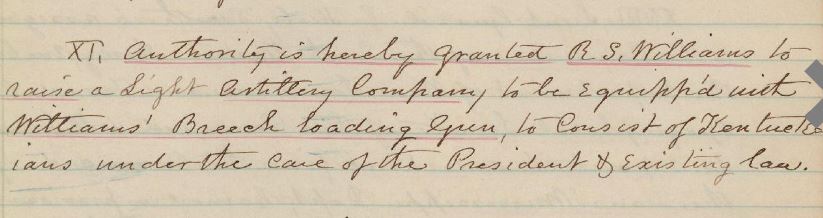 XI. Authority is hereby granted R S. Williams to
raise a Light Artillery Company, to be Equipp'd with
Williams' Breech loading Gun, to Consist of Kentuck-
ians under the care of the President & Existing law.